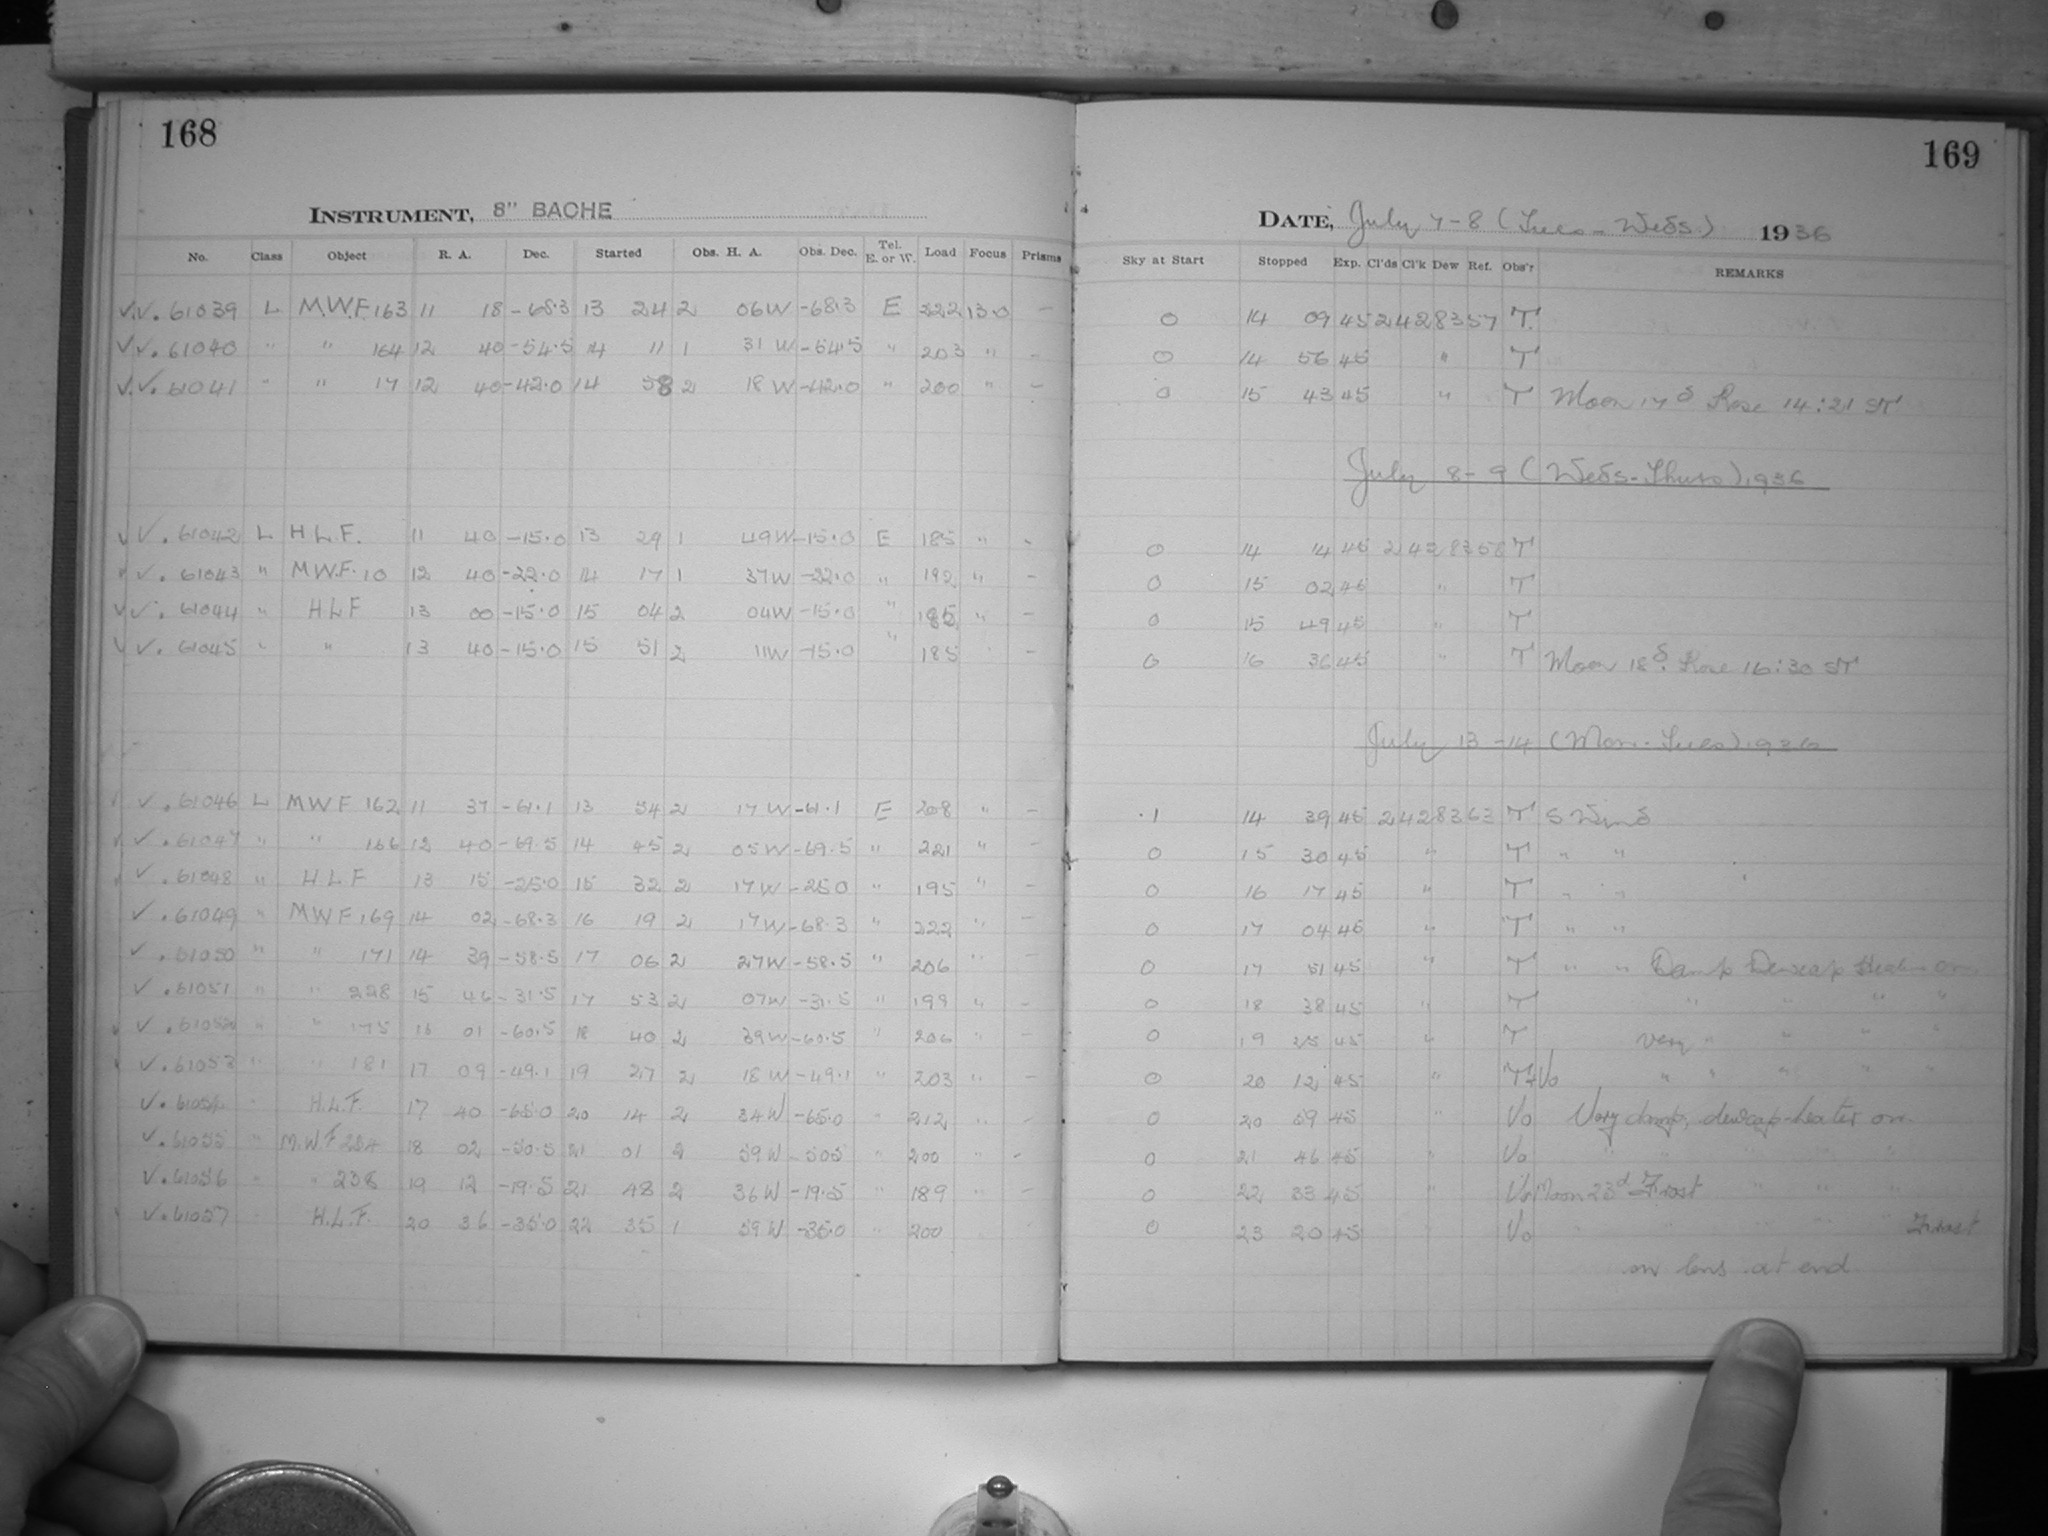 168
INSTRUMENT, 8" BACHE
No. Class Object R. A. Dec. Started Obs. H. A. Obs. Dec. Tel. E. or W. Load Focus Prisms
√√. 61039 L M.W.F. 163 11 18 -68.3 13 24 2 06W -68.3 E 222 13.0 -
√√. 61040 " " 164 12 40 -54.5 14 11 1 31 W -54.5 " 203 " -
√√. 61041 " " 17 12 40 -42.0 14 58 2 18 W -42.0 " 200 " -
√√. 61042 L H L F. 11 40 -15.0 13 29 1 49W -15.0 E 185 " -
√√. 61043 " M.W.F. 10 12 40 -22.0 14 17 1 37W -22.0 " 192 " -
√√. 61044 " H L F 13 00 -15.0 15 04 2 04W -15.0 " 185 " -
√√. 61045 " " 13 40 -15.0 15 51 2 11W -15.0 " 185 -
√√. 61046 L M W F 162 11 37 -61.1 13 54 2 17 W -61.1 E 208 " -
√√. 61047 " " 166 12 40 -69.5 14 45 2 05W -69.5 " 221 " -
√√. 61048 " H L F 13 15 -25.0 15 32 2 17W -25.0 " 195 " -
√√. 61049 " M W F 169 14 02 -68.3 16 19 2 17W -68.3 " 222 " -
√√. 61050 " " 171 14 39 -58.5 17 06 2 27W -58.5 " 206 " -
√. 61051 " " 228 15 46 -31.5 17 53 2 07W -31.5 " 199 " -
√√. 61052 " " 175 16 01 -60.5 18 40 2 39W -60.5 " 206 " -
√√. 61053 " " 181 17 09 -49.1 19 27 2 18W -49.1 " 203 " -
√. 61054 " H.L.F. 17 40 -65.0 20 14 2 34W -65.0 " 212 " -
√. 61055 " M.W F 234 18 02 -50.5 21 01 2 59W -50.5 " 200 " -
√. 61056 " " 238 19 12 -19.5 21 48 2 36W -19.5 " 189 " -
√√. 61057 " H.L.F. 20 36 -35.0 22 35 1 59W -35.0 " 200
169
DATE, July 7-8 (Tues-Weds) 1936
Sky at Start Stopped Exp. Cl'ds Cl'k Dew Ref. Obs'r REMARKS
0 14 09 45 2428357 T.
0 14 56 45 " T
0 15 43 45 " T Moon 17d Rose 14:21 ST
July 8-9 (Weds-Thurs) 1936
0 14 14 45 2428358 T
0 15 02 45 " T
0 15 49 45 " T
0 16 36 45 " T Moon 18d. Rose 16:30 ST
July 13-14 (Mon-Tues) 1936
.1 14 39 45 2428363 T S Wind
0 15 30 45 " T " "
0 16 17 45 " T " "
0 17 04 45 " T " "
0 17 51 45 " T " " Damp Dewcap Heater on
0 18 38 45 " T " " " "
0 19 25 45 " T very " " " "
0 20 12 45 " T+Vo " " " " "
0 20 59 45 " Vo Very damp, dewcap-heater on
0 21 46 45 " Vo " " " " "
0 22 33 45 " Vo Moon 23d Frost " " "
0 23 20 45 Vo " " " Frost
on lens at end